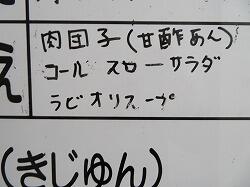 肉団子(甘酢あん)
コールスローサラダ
え
ラビオリスープ
(きじゅん)